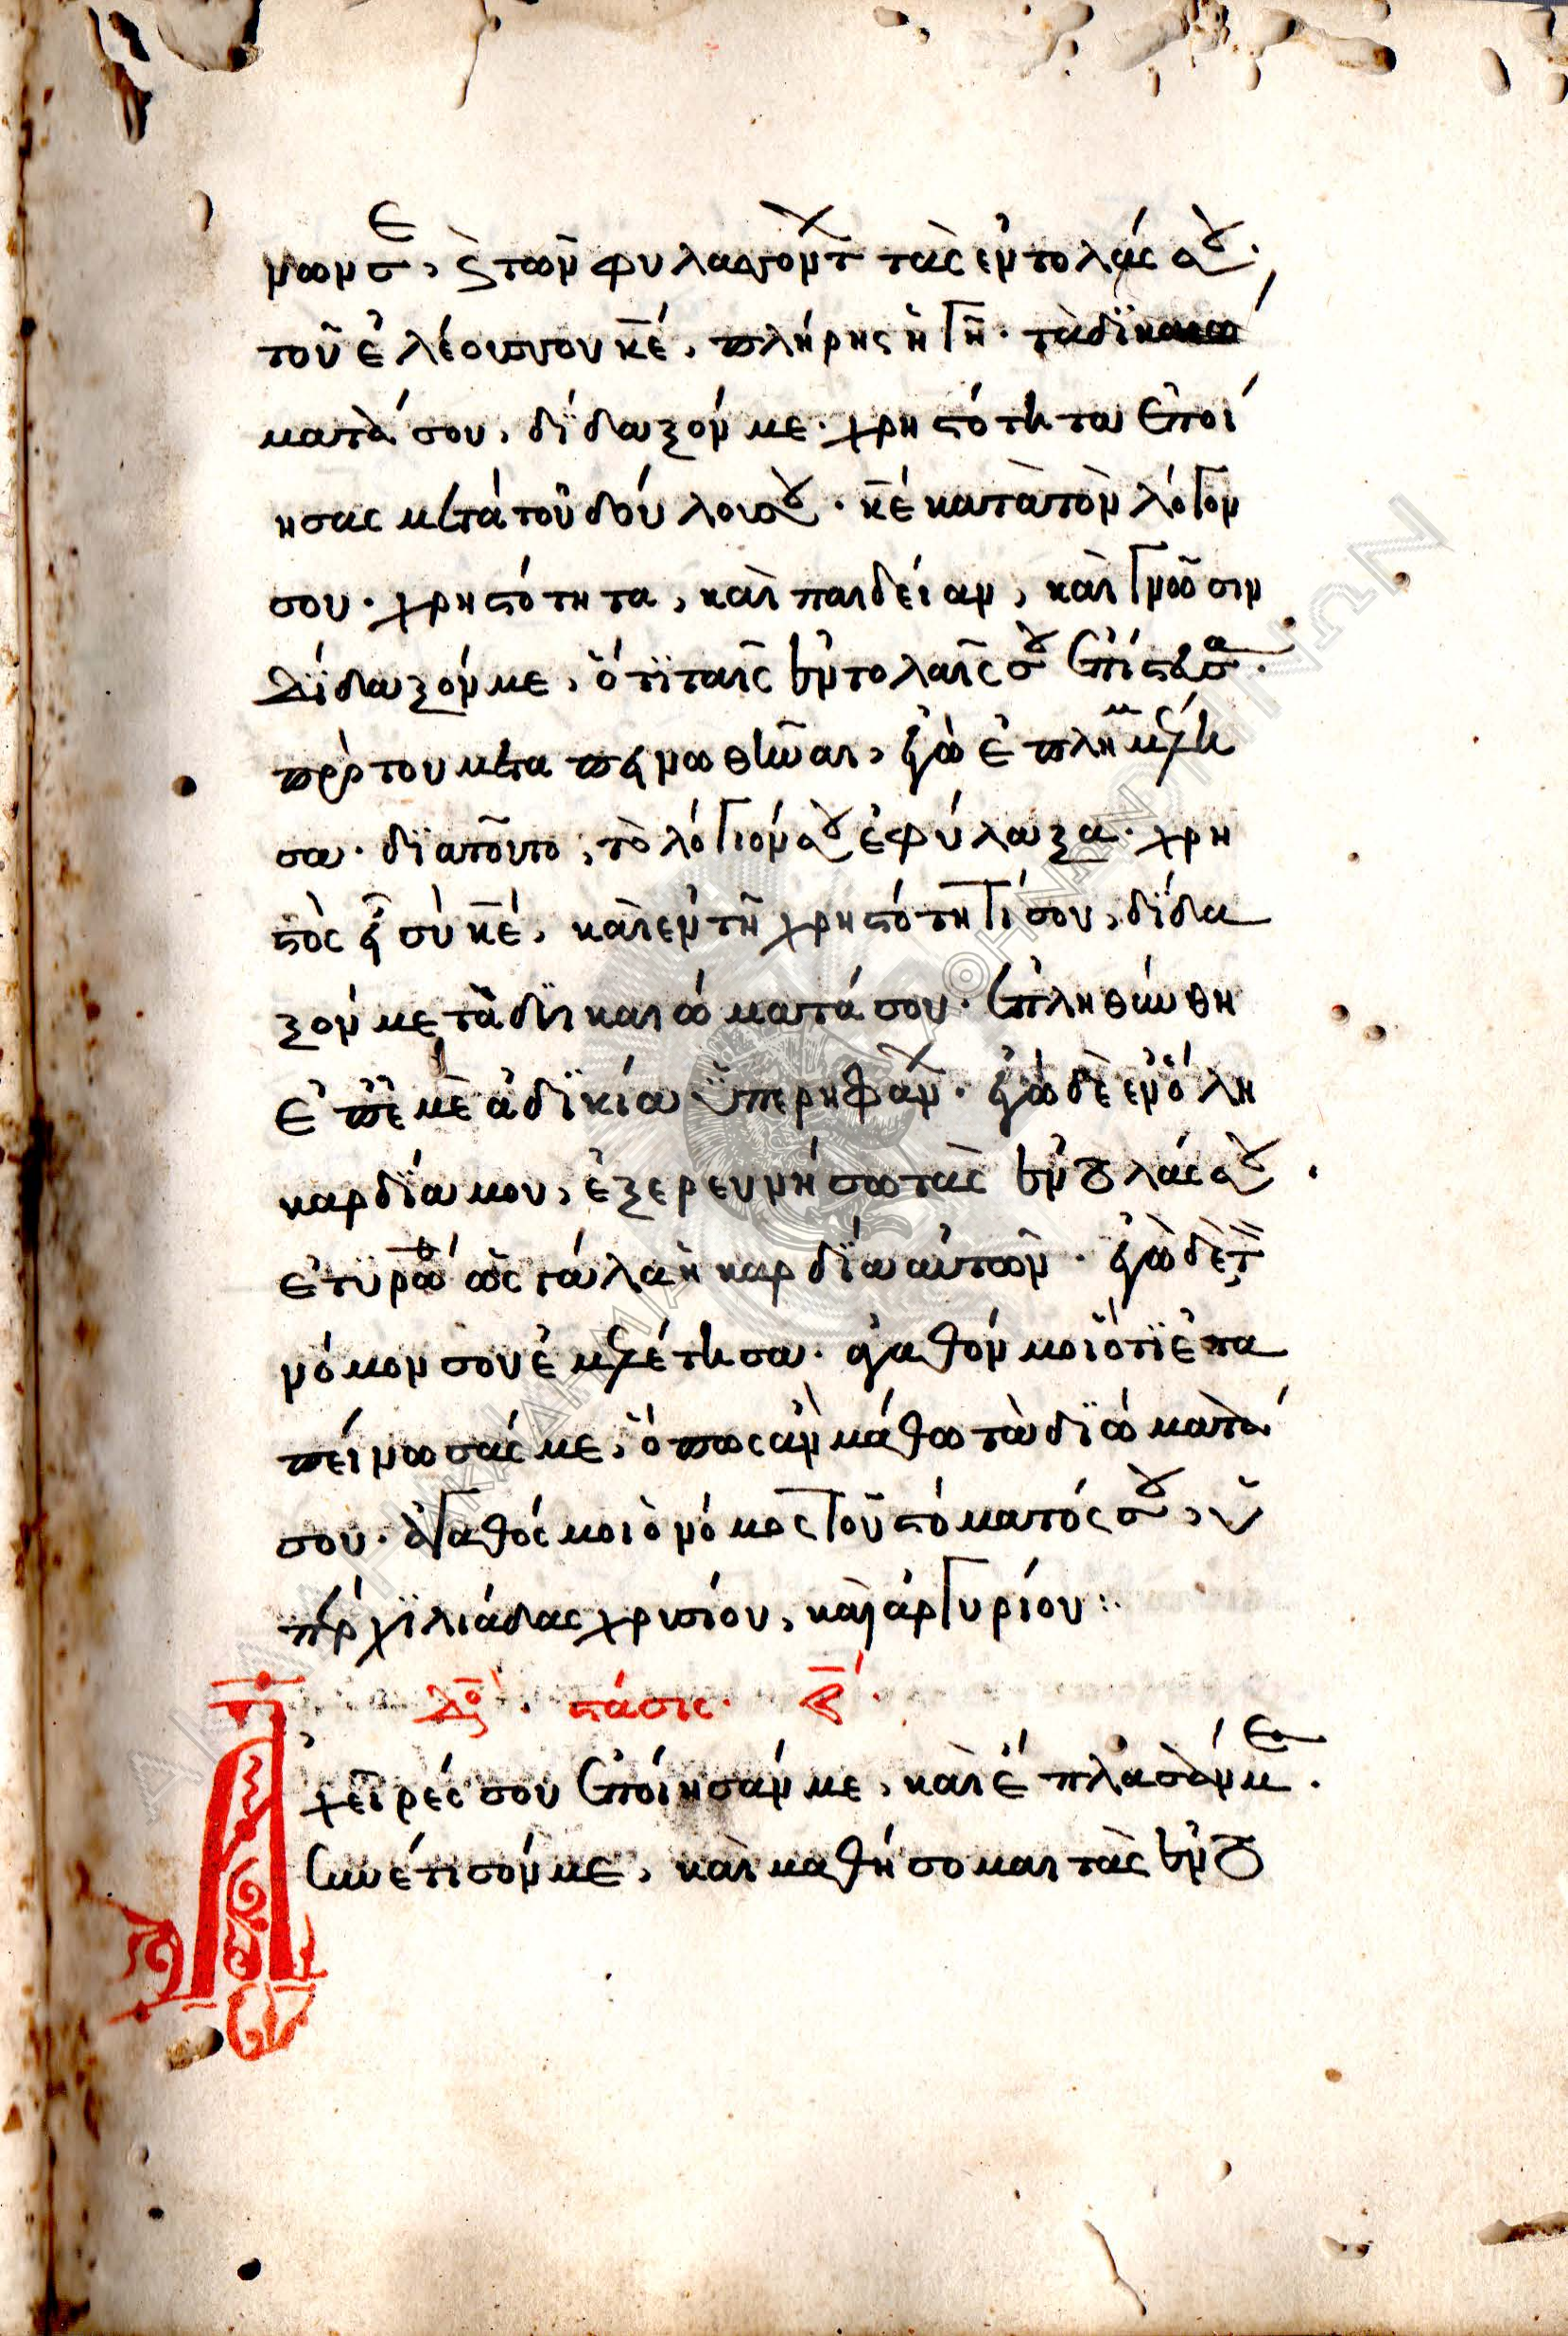 νων σε, ϗ τῶν φυλασσόντ τὰς ἐντολάς σου·
τοῦ ἐλέους σου κε̅, πλήρης ἡ γῆ· τὰ δϊκαιώ
ματά σου, δίδαξόν με· χρηστότητα ἐποί
ησας μετὰ τοῦ δούλου σου· κε̅ κατὰ τὸν λόγον
σου· χρηστότητα, καὶ παιδείαν, καὶ γνῶσιν
Δίδαξόν με, ὅτϊ ταῖς ἐντολαῖς σου ἐπίστευσα·
πρὸ τοῦ με ταπεινωθῆναι, ἐγὼ ἐπλημμέλη
σα· διατοῦτο, τὸ λόγιόν σου ἐφύλαξα· χρη
στὸς εἶ σὺ κε̅, καὶ ἐν τῆ χρηστότητί σου, δίδα
ξόν με τὰ δϊκαιώματά σου· ἐπληθύνθη
ἐπ' ἐμὲ ἀδϊκία ὑπερηφάν· ἐγὼ δὲ ἐν ὅλη
καρδία μου, ἐξερευνήσω τὰς ἐντολάς σου·
ἐτυρώθ ὡς γάλα ἡ καρδία αὐτῶν· ἐγὼ δὲ τ
νόμον σου ἐμελέτησα· ἀγαθόν μοι ὅτϊ ἐτα
πείνωσάς με, ὅπως ἂν μάθω τὰ δϊώματά
σου· ἀγαθός μοι ὁ νόμος τοῦ στόματός σου, ὑ
πὲρ χϊλιάδας χρυσίου, καὶ ἀργυρίου:
Δόξ· στάσις· β̅·
Αἱ χεῖρές σου ἐποίησάν με, καὶ ἔπλασάν με·
Συνέτισόν με, καὶ μαθήσομαι τὰς ἐντο